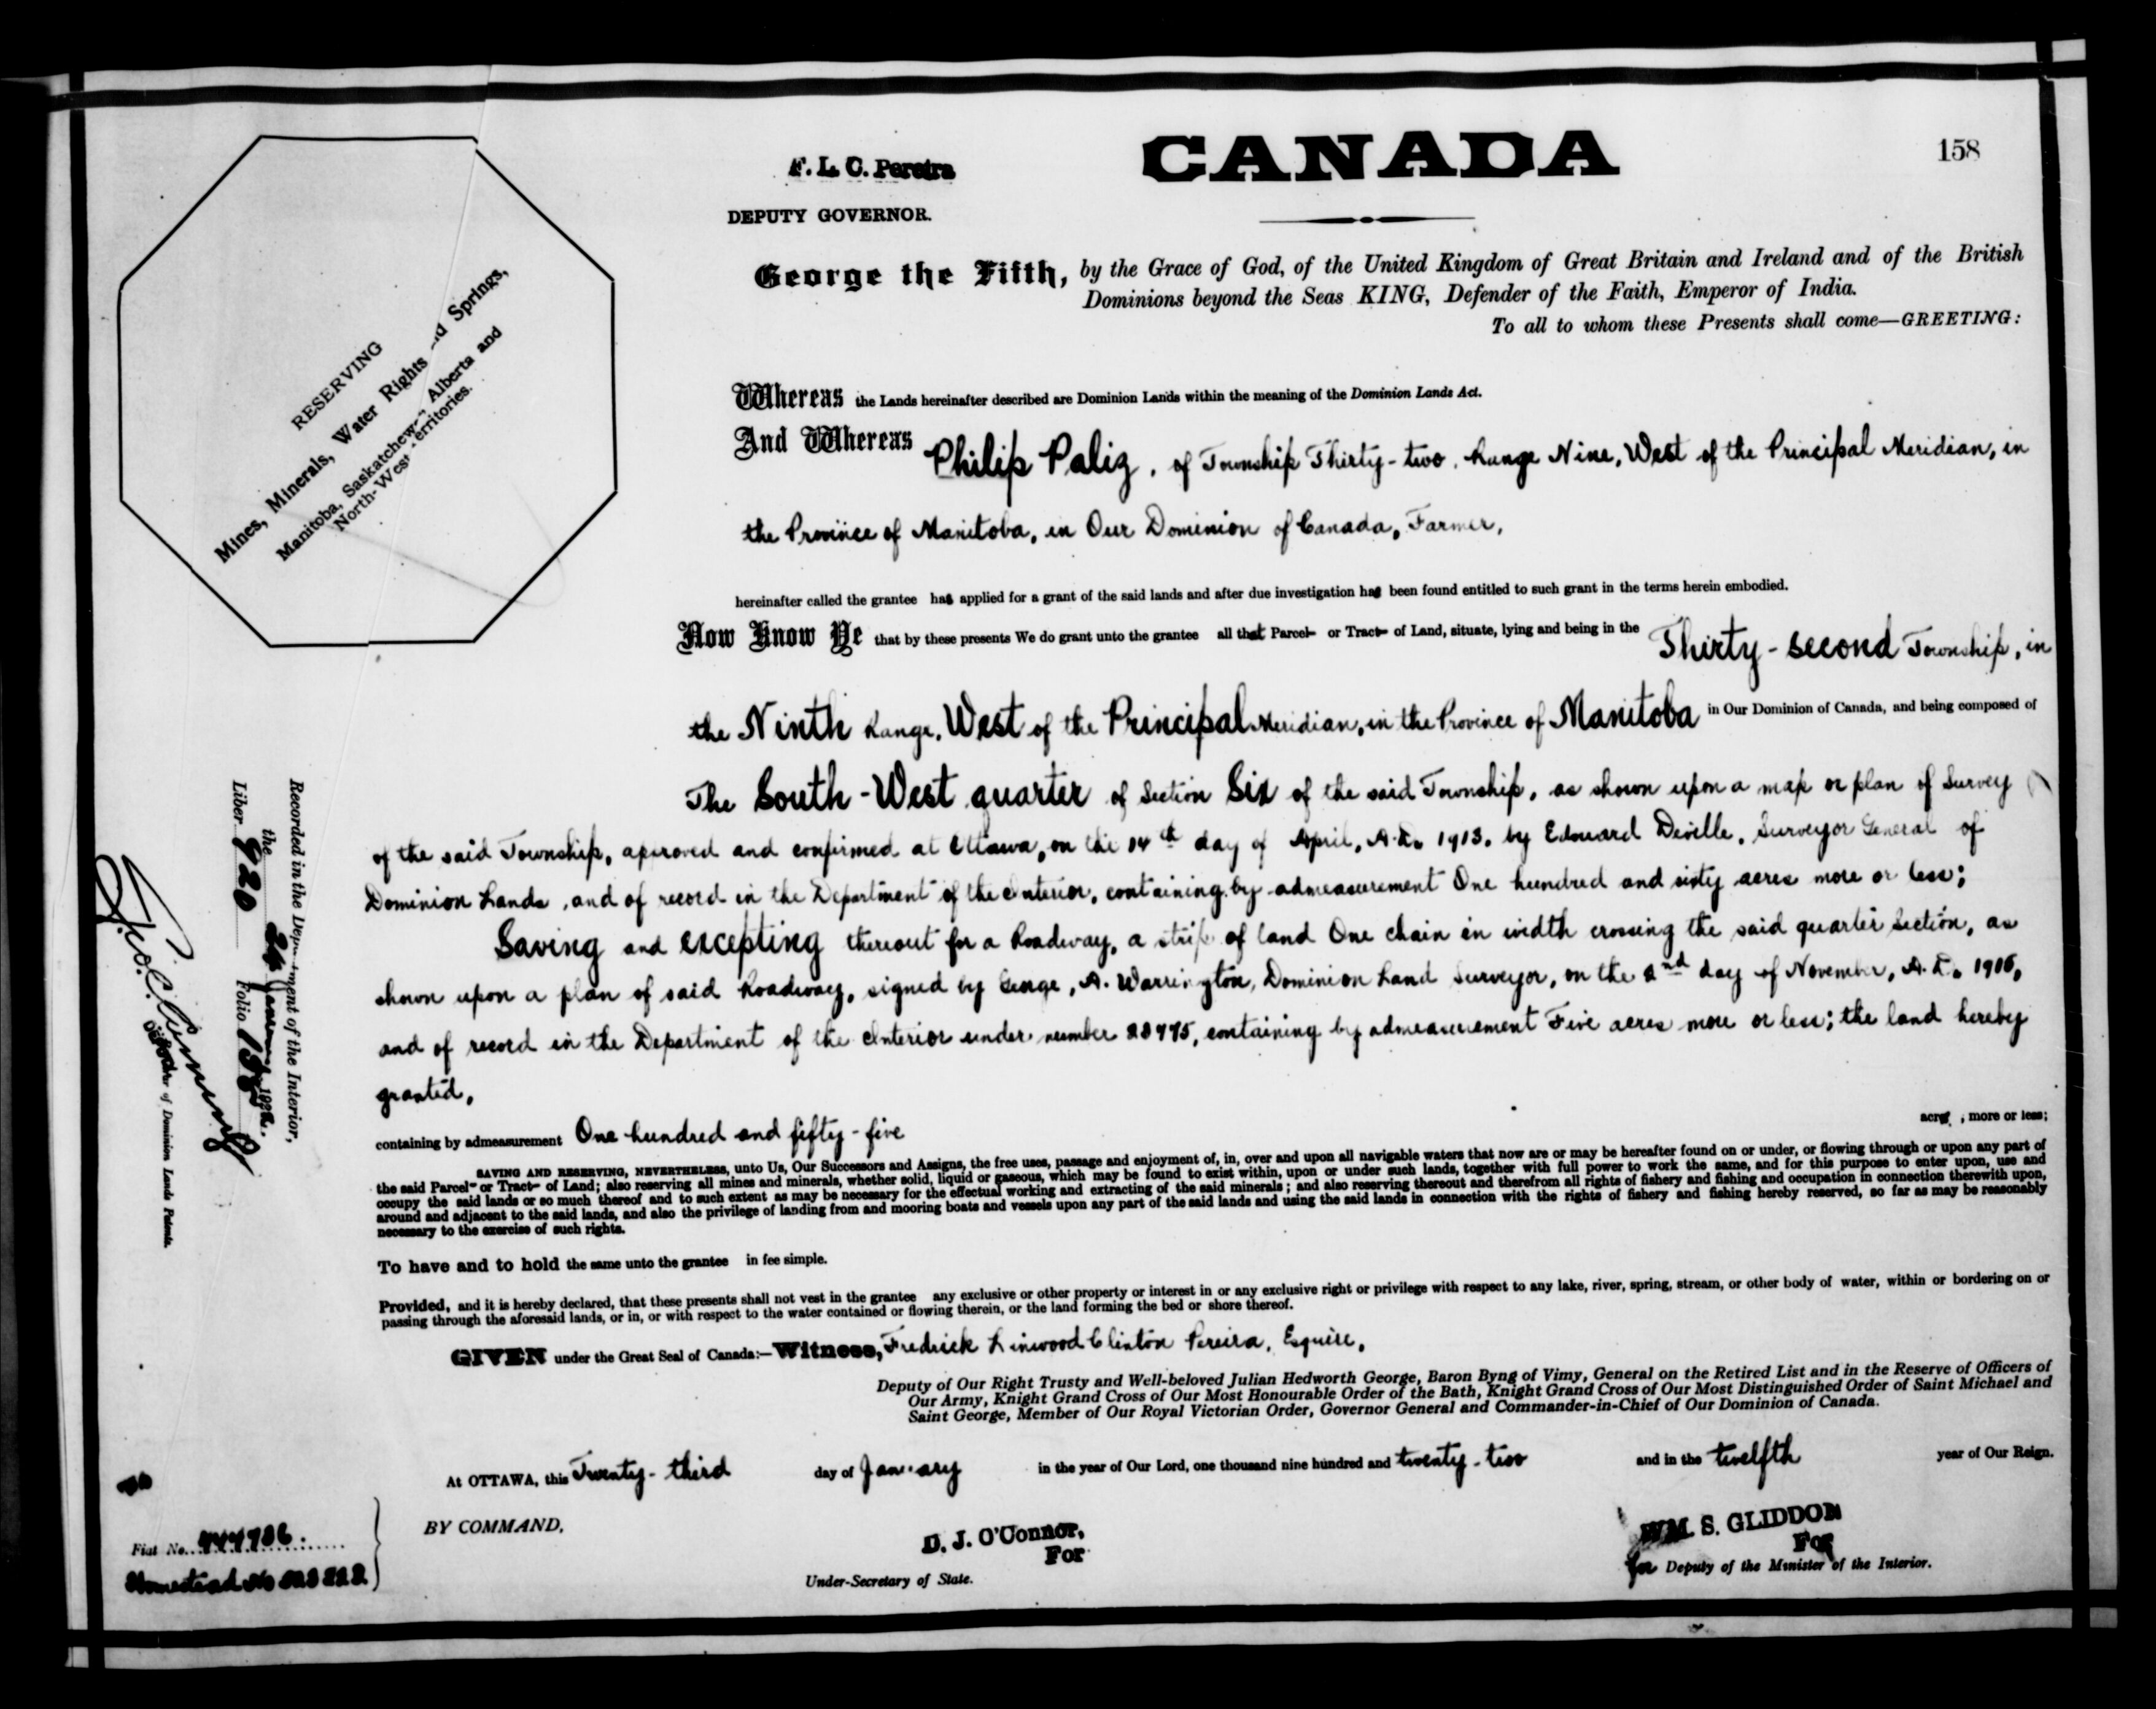 CANADA
158
F. L. C. Pereira
DEPUTY GOVERNOR.
George the Fifth, by the Grace of God, of the United Kingdom of Great Britain and Ireland and of the British
Dominions beyond the Seas KING, Defender of the Faith, Emperor of India.
To all to whom these Presents shall come—GREETING:
RESERVING
Mines, Minerals, Water Rights and Springs,
Manitoba, Saskatchewan, Alberta and
North-West Territories.
Whereas the Lands hereinafter described are Dominion Lands within the meaning of the Dominion Lands Act.
And Whereas Philip Paliz, of Township Thirty-two, Range Nine, West of the Principal Meridian, in
the Province of Manitoba, in Our Dominion of Canada, Farmer,
hereinafter called the grantee has applied for a grant of the said lands and after due investigation has been found entitled to such grant in the terms herein embodied.
Now Know Ye that by these presents We do grant unto the grantee all that Parcel or Tract of Land, situate, lying and being in the Thirty-second Township, in
the Ninth Range, West of the Principal Meridian, in the Province of Manitoba in Our Dominion of Canada, and being composed of
The South-West quarter of Section Six of the said Township, as shown upon a map or plan of Survey
of the said Township, aproved and confirmed at Ottawa, on the 14th day of April, A.D. 1913. by Edouard Deville, Surveyor General of
Dominion Lands, and of record in the Department of the Interior, containing by admeasurement One hundred and sixty acres more or less;
Saving and excepting thereout for a Roadway, a strip of land One chain in width crossing the said quarter Section, as
shown upon a plan of said Roadway, signed by George, A. Warrington, Dominion Land Surveyor, on the 2nd day of November, A.D. 1916,
and of record in the Department of the Interior under number 23475, containing by admeasurement Five acres more or less; the land hereby
granted,
containing by admeasurement One hundred and fifty-five acres, more or less;
SAVING AND RESERVING, NEVERTHELESS, unto Us, Our Successors and Assigns, the free uses, passage and enjoyment of, in, over and upon all navigable waters that now are or may be hereafter found on or under, or flowing through or upon any part of
the said Parcel or Tract of Land; also reserving all mines and minerals, whether solid, liquid or gaseous, which may be found to exist within, upon or under such lands, together with full power to work the same, and for this purpose to enter upon, use and
occupy the said lands or so much thereof and to such extent as may be necessary for the effectual working and extracting of the said minerals; and also reserving thereout and therefrom all rights of fishery and fishing and occupation in connection therewith upon,
around and adjacent to the said lands, and also the privilege of landing from and mooring boats and vessels upon any part of the said lands and using the said lands in connection with the rights of fishery and fishing hereby reserved, so far as may be reasonably
necessary to the exercise of such rights.
To have and to hold the same unto the grantee in fee simple.
Provided, and it is hereby declared, that these presents shall not vest in the grantee any exclusive or other property or interest in or any exclusive right or privilege with respect to any lake, river, spring, stream, or other body of water, within or bordering on or
passing through the aforesaid lands, or in, or with respect to the water contained or flowing therein, or the land forming the bed or shore thereof.
GIVEN under the Great Seal of Canada:—Witness, Fredrick Linwood Clinton Pereira, Esquire,
Deputy of Our Right Trusty and Well-beloved Julian Hedworth George, Baron Byng of Vimy, General on the Retired List and in the Reserve of Officers of
Our Army, Knight Grand Cross of Our Most Honourable Order of the Bath, Knight Grand Cross of Our Most Distinguished Order of Saint Michael and
Saint George, Member of Our Royal Victorian Order, Governor General and Commander-in-Chief of Our Dominion of Canada.
At OTTAWA, this Twenty-third day of January in the year of Our Lord, one thousand nine hundred and twenty-two and in the twelfth year of Our Reign.
BY COMMAND,
D. J. O'Connor,
For
Under-Secretary of State.
WM. S. GLIDDON
For
for Deputy of the Minister of the Interior.
Recorded in the Department of the Interior,
the 24 January 1922.
Liber 920 Folio 158
of Dominion Lands Patents.
Fiat No. 444736.
Homestead No